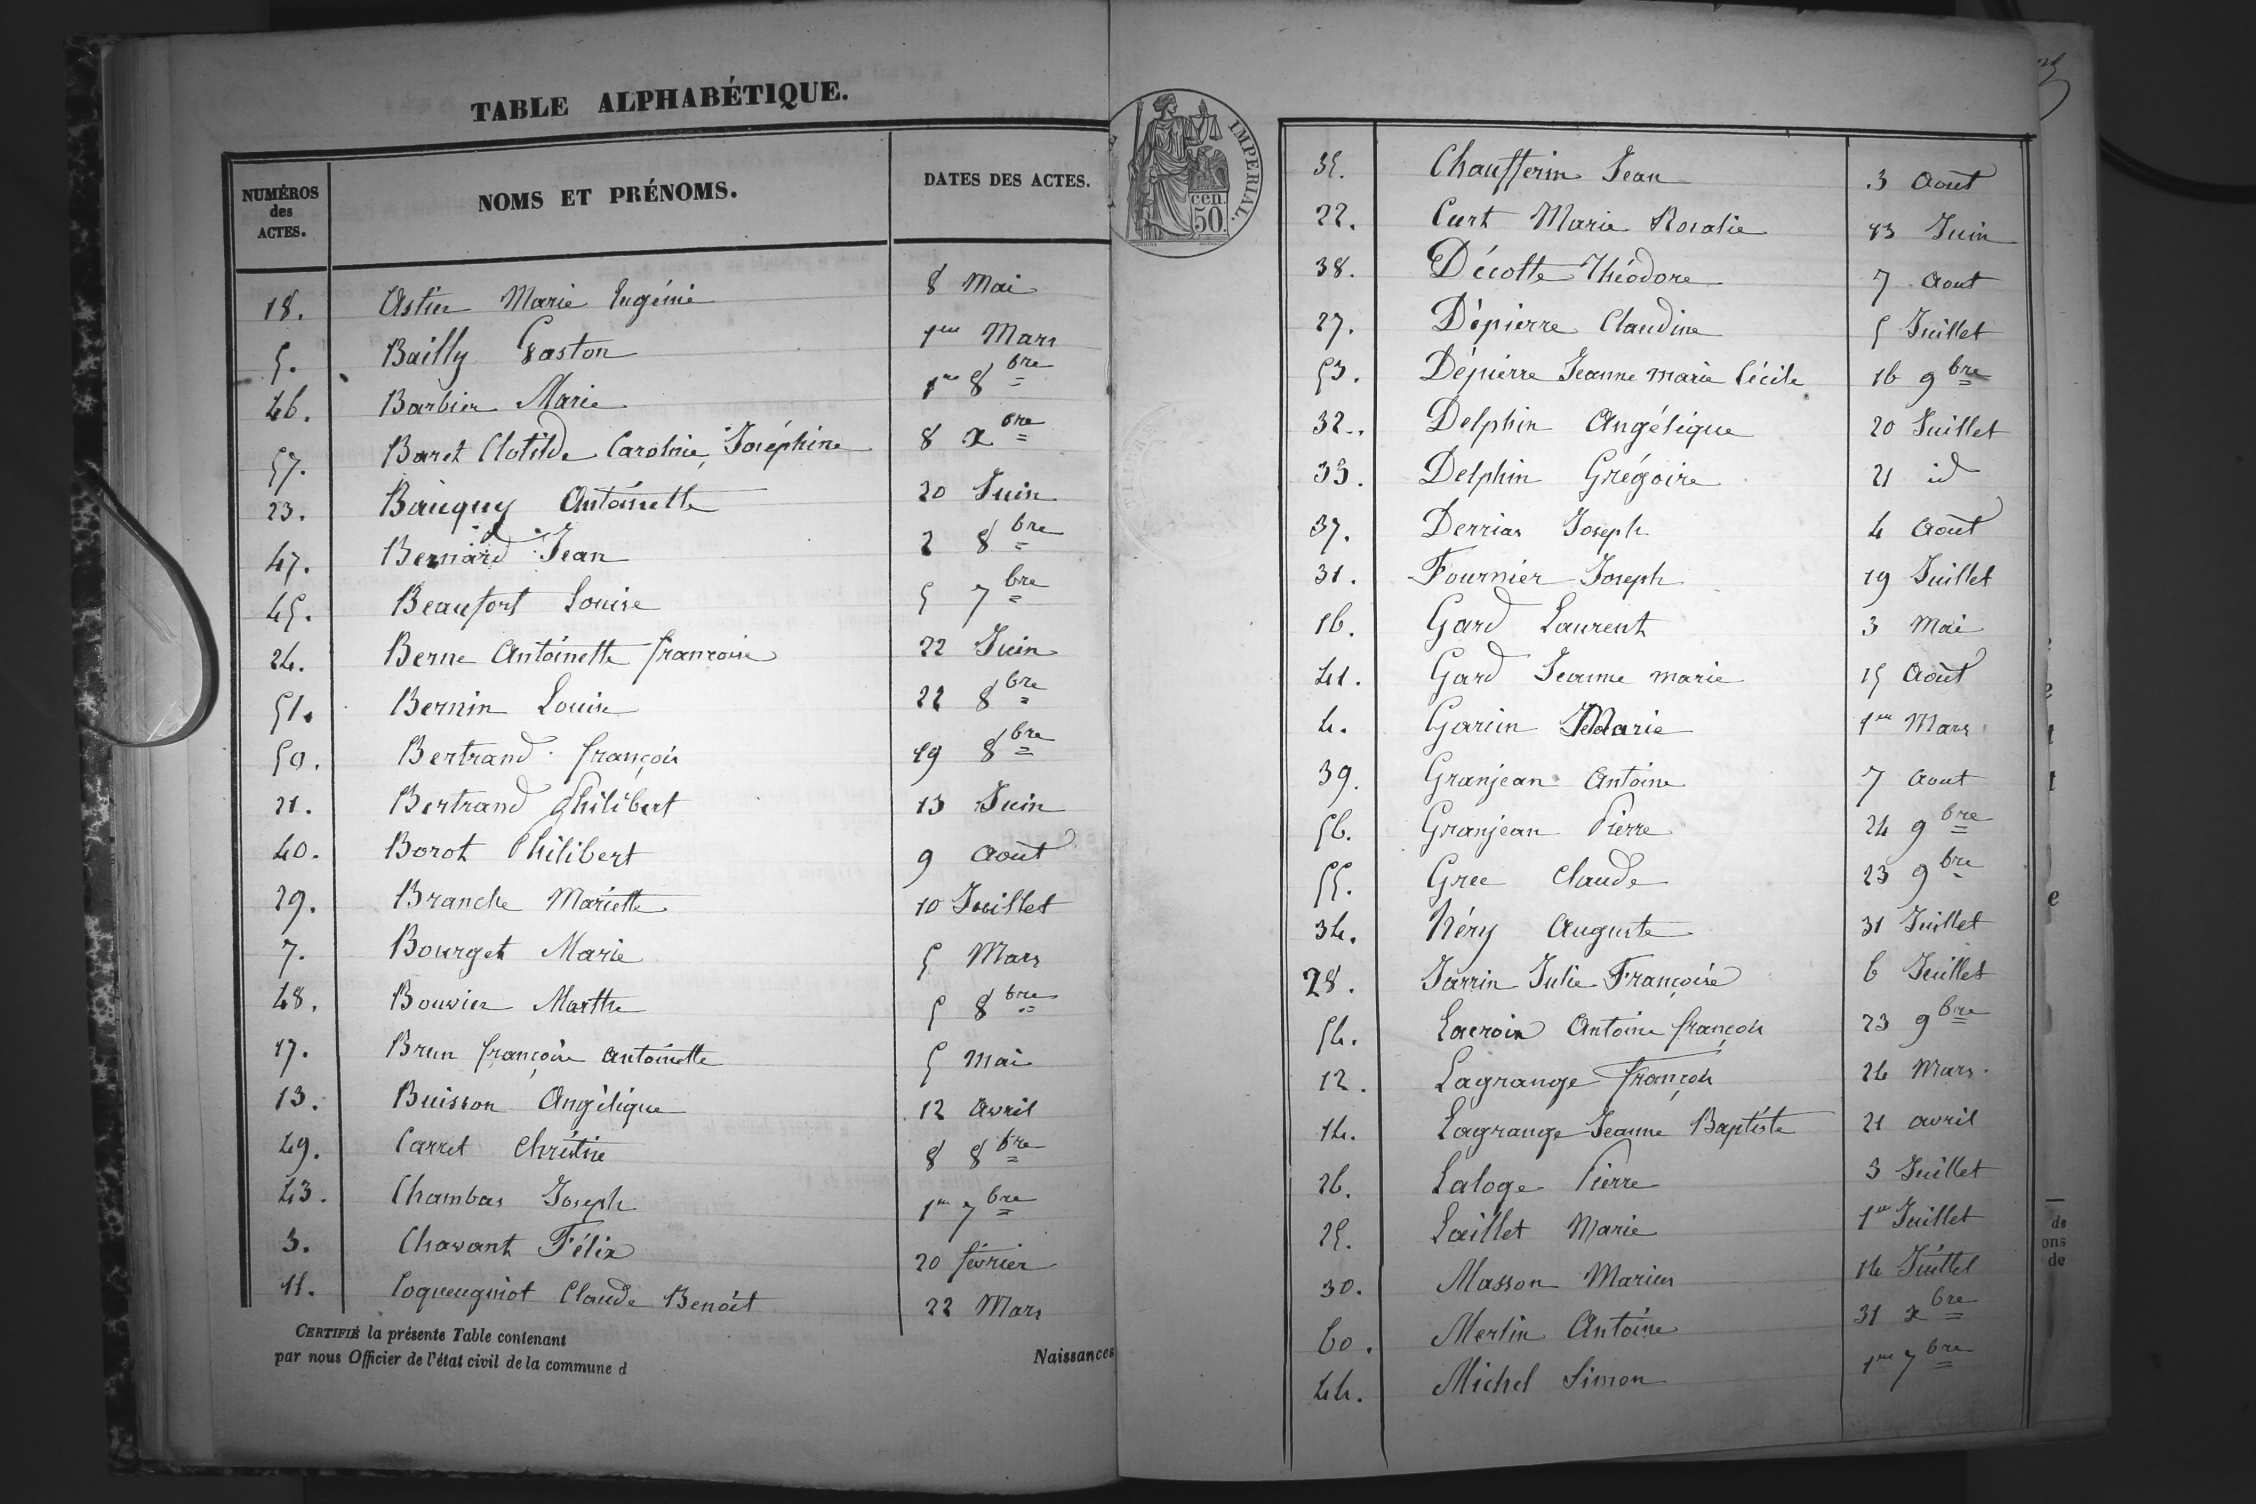 TABLE ALPHABÉTIQUE.
NUMÉROS des ACTES. NOMS ET PRÉNOMS. DATES DES ACTES.
18. Astier Marie Eugénie 8 Mai
5. Bailly Gaston 1er Mars
46. Barbier Marie 1er 8bre
57. Baret Clotilde Caroline, Joséphine 8 xbre
23. Bauquey Antoinette 20 Juin
47. Bernard Jean 2 8bre
45. Beaufort Louise 5 7bre
24. Berne Antoinette françoise 22 Juin
51. Bernin Louise 22 8bre
50. Bertrand françois 19 8bre
21. Bertrand Philibert 13 Juin
40. Borot Philibert 9 Août
29. Branche Mariette 10 Juillet
7. Bourget Marie 5 Mars
48. Bouvier Marthe 5 8bre
17. Brun françoise antoinette 5 mai
13. Buisson Angélique 12 Avril
49. Carret Christine 8 8bre
43. Chambas Joseph 1er 7bre
3. Chavant Félix 20 février
11. Coqueugniot Claude Benoit 22 Mars
CERTIFIÉ la présente Table contenant Naissances
par nous Officier de l'état civil de la commune d
IMPERIAL.
cen.
50.
35. Chaufferin Jean 3 Août
22. Curt Marie Rosalie 13 Juin
38. Décotte Théodore 7 Aout
27. Dépierre Claudine 5 Juillet
53. Dépierre Jeanne marie Cécile 16 9bre
32. Delphin Angélique 20 Juillet
33. Delphin Grégoire 21 id
37. Derrias Joseph 4 Août
31. Fournier Joseph 19 Juillet
16. Gard Laurent 3 Mai
41. Gard Jeanne marie 15 Août
4. Garin Marie 1er Mars
39. Granjean Antoine 7 Aout
56. Granjean Pierre 24 9bre
55. Gree Claude 23 9bre
34. Héry Auguste 31 Juillet
28. Jarrin Julie Françoise 6 Juillet
54. Lacroix Antoine françois 23 9bre
12. Lagrange françois 24 Mars.
14. Lagrange Jeanne Baptiste 21 avril
26. Laloge Pierre 3 Juillet
25. Laillet Marie 1er Juillet
30. Masson Marius 14 Juillet
60. Merlin Antoine 31 xbre
44. Michel Simon 1er 7bre